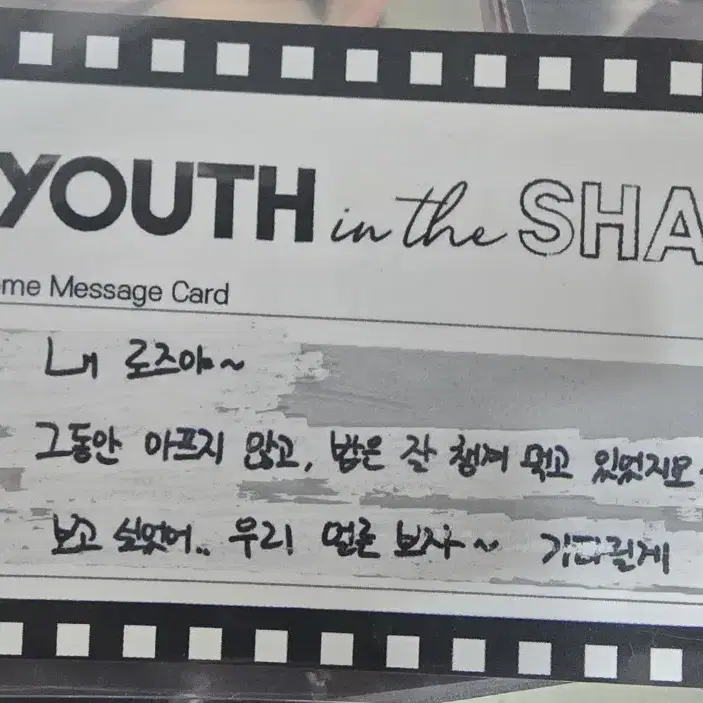 YOUTH in the SHA
me Message Card
내 로즈야~
그동안 아프지 않고, 밥은 잘 챙겨 먹고 있었지모
보고 싶었어.. 우리 얼른 보자~ 기다릴게